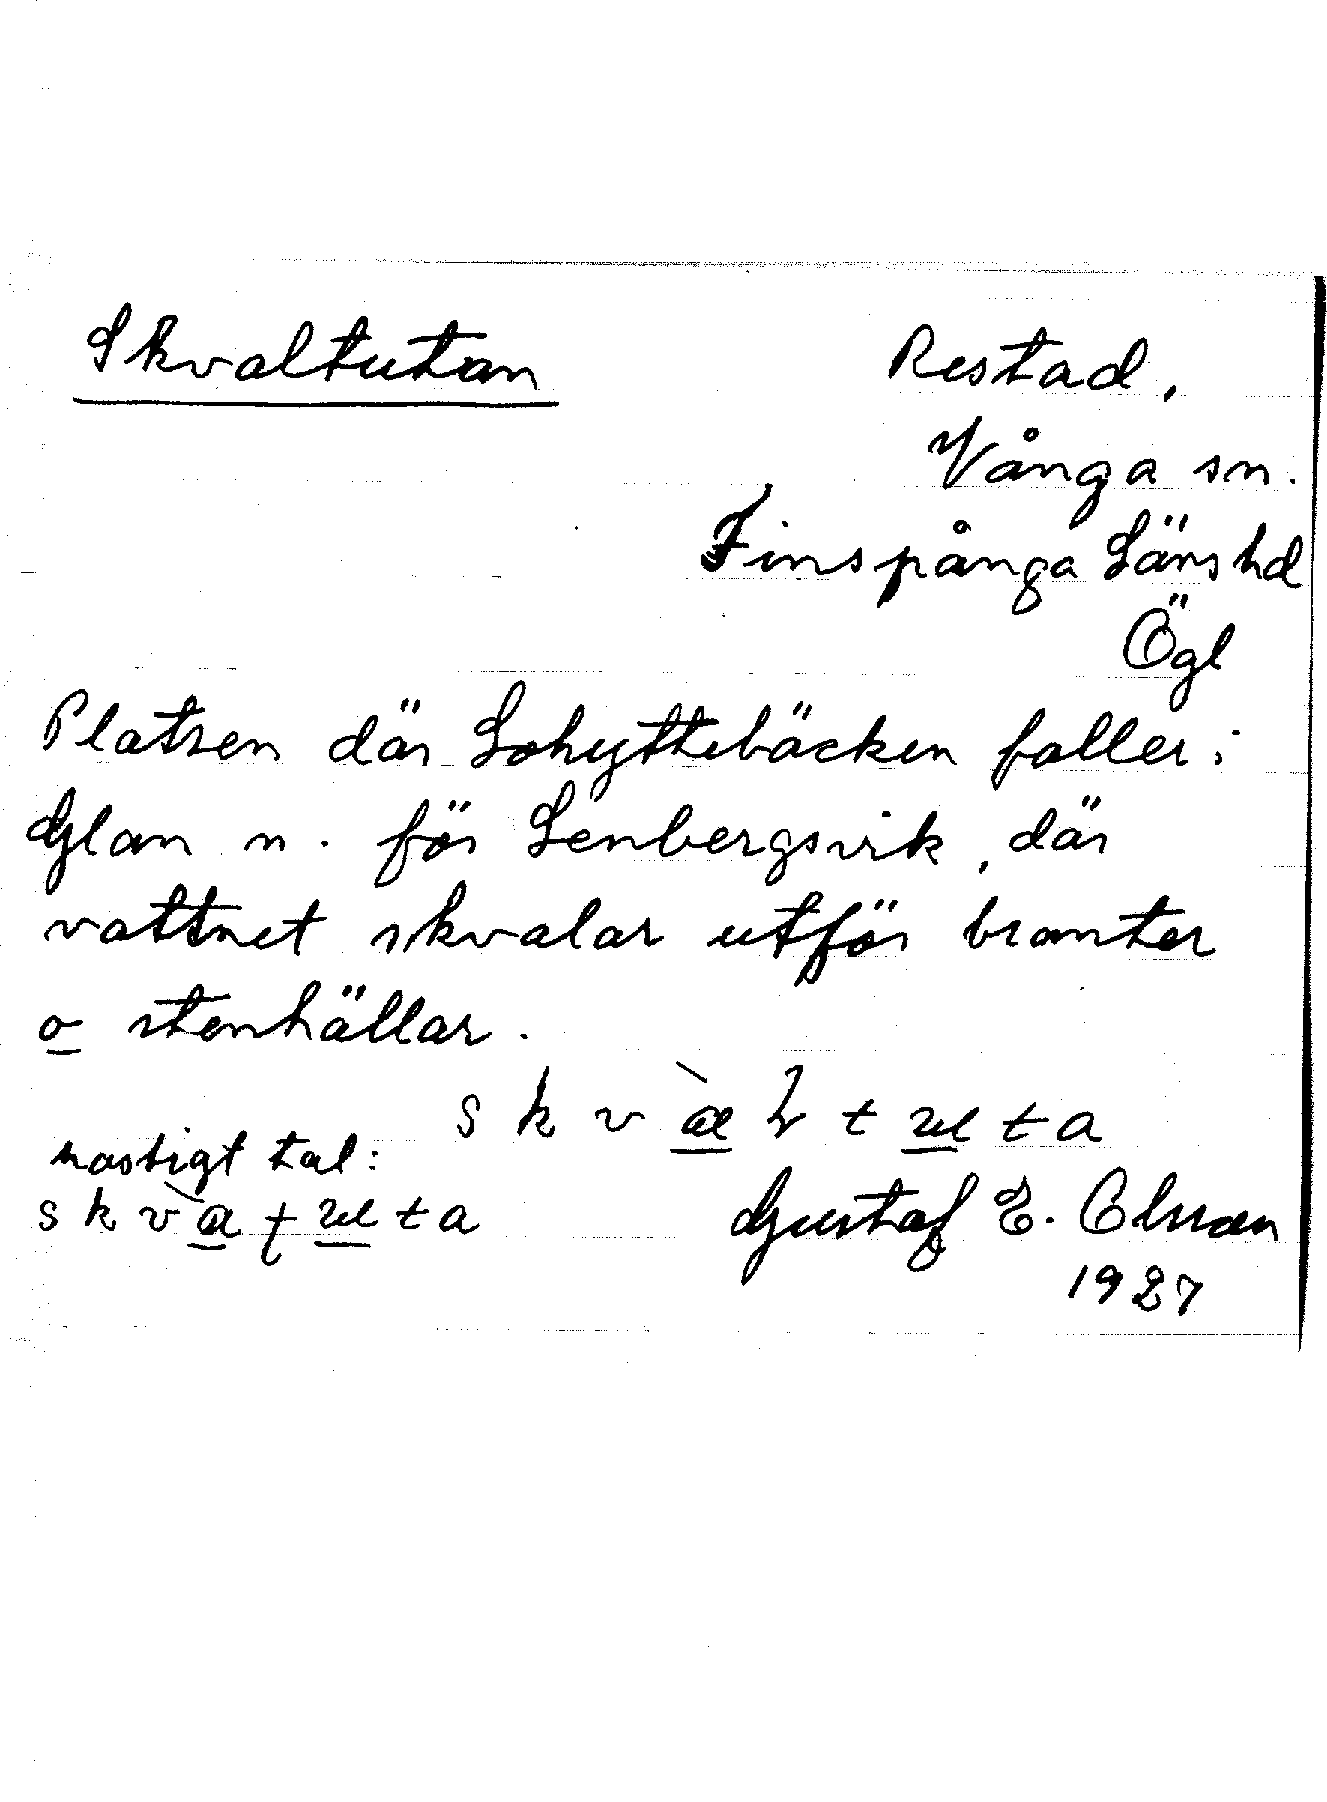 Skvaltutan
Restad,
Vånga sn.
Finspånga Läns hd
Ögl
Platsen där Lohyttebäcken faller i
Glan n. för Lenbergsvik, där
vattnet skvalar utför branter
o stenhällar.
hastigt tal:
Gustaf E. Olsson
1927